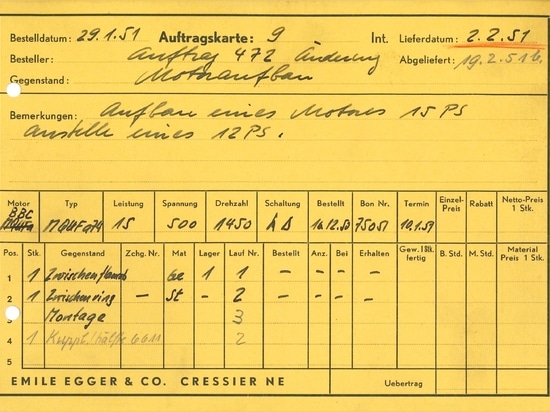 Bestelldatum: 29.1.51 Auftragskarte: 9 Int. Lieferdatum: 2.2.51
Besteller: Auftrag 472 Änderung Abgeliefert: 19.2.51
Gegenstand: Motoraufbau
Bemerkungen: Aufbau eines Motores 15 PS
anstelle eines 12 PS.
Motor Typ Leistung Spannung Drehzahl Schaltung Bestellt Bon Nr. Termin Einzel-Preis Rabatt Netto-Preis 1 Stk.
BBC 15 500 1450 16.12.50 75051 10.1.51
Pos. Stk. Gegenstand Zchg. Nr. Mat Lager Lauf Nr. Bestellt Anz. Bei Erhalten Gew. 1 Stk. fertig B. Std. M. Std. Material Preis 1 Stk.
1 1 Zwischenflansch Ge 1 1 – – –
2 1 Zwischenring – St – 2 – – –
3 Montage 3
4 1 2
5
EMILE EGGER & CO. CRESSIER NE Uebertrag